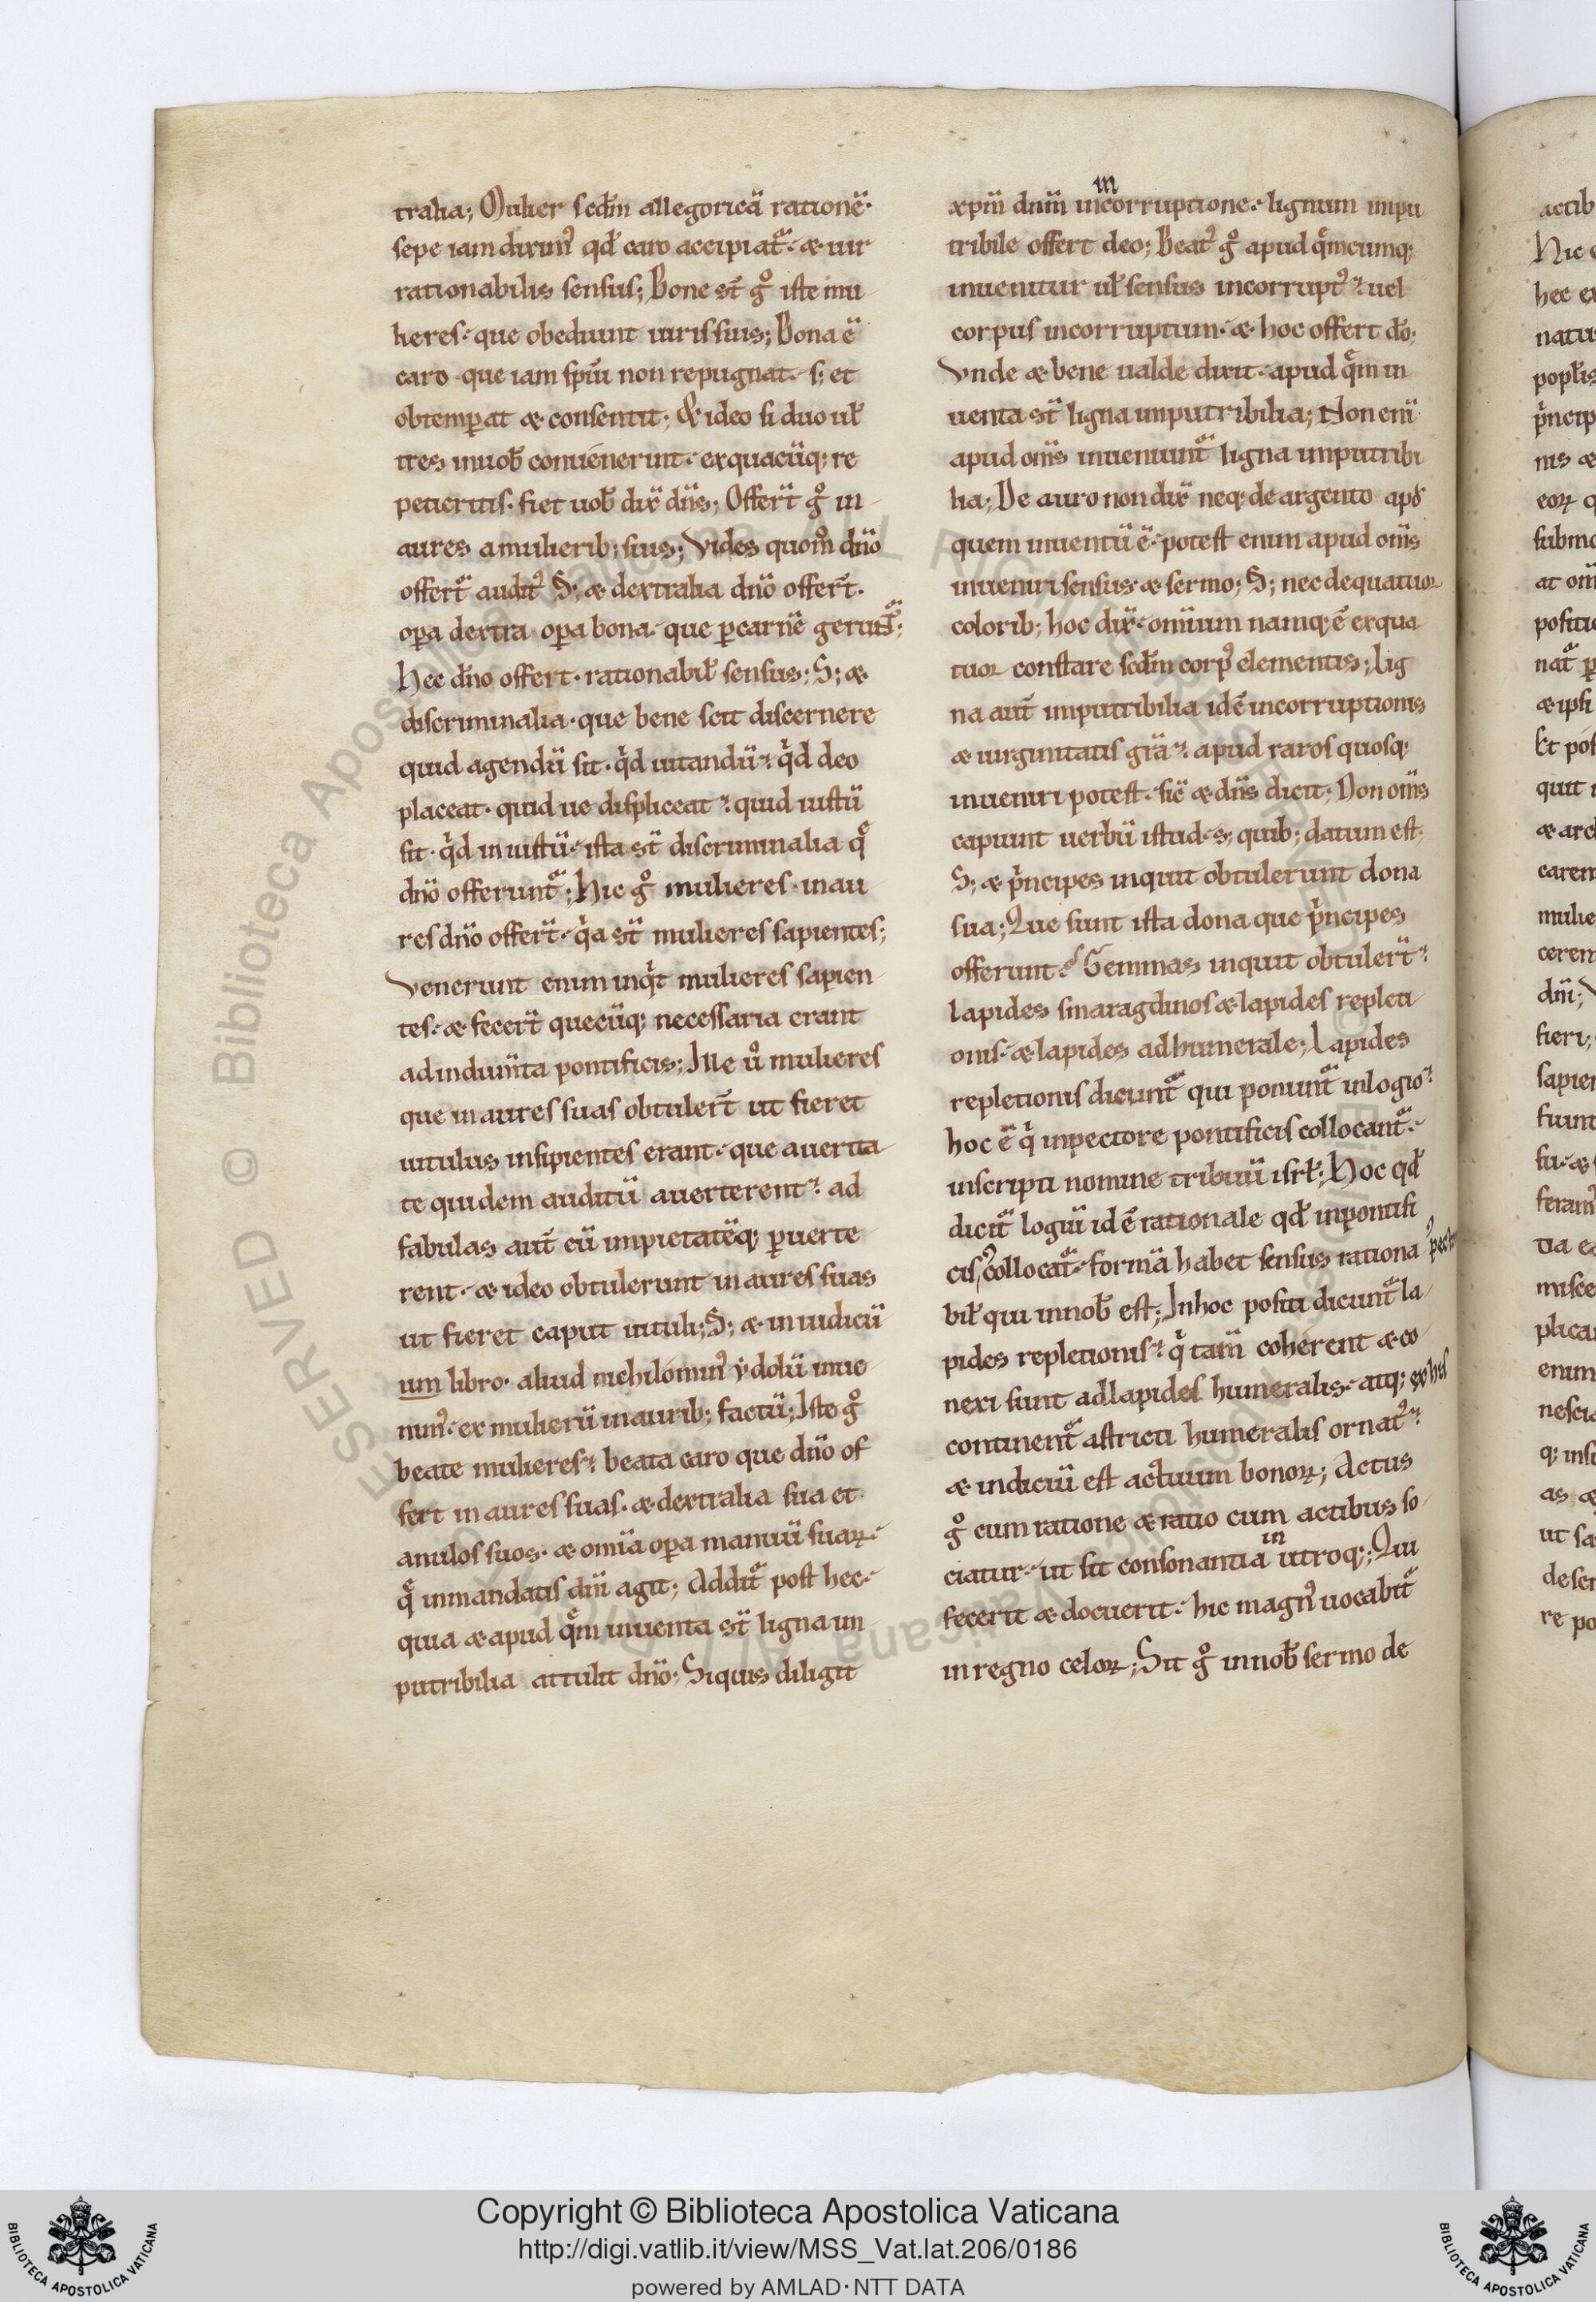 tralia; Mulier scdm̄ allegoricā rationē·
sepe iam diximꝰ qđ caro accipiat᷑· æ uir
rationabilis sensus; Bone st̄ gͦ iste mu
lieres· que obediunt uiris suis; Bona ē
caro que iam spūi non repugnat· s; et
obtemꝑat æ consentit; & ideo si duo ul̵
tres inuob̵ conuenerint· exquacūq; re
petieritis· fiet uob̵ dix̄ dn̄s; Offert̄ gͦ in
aures amulierib; suis; Vides quom̊ dn̄o
offert᷑ auditꝰ S; æ dextralia dn̄o offert̄·
oꝑa dextra oꝑa bona· que ꝑcarnē gerunt᷑;
Hec dn̄o offert· rationabil̵ sensus; S; æ
discriminalia· que bene scit discernere
quid agendū sit· qͥd uitandū· qͥd deo
placeat· quid ue displiceat· quid iustū
sit· qͥd iniustū· ista st̄ discriminalia q̄
dn̄o offerunt᷑; Hic gͦ mulieres· inau
res dn̄o offert̄· qͥa st̄ mulieres sapientes;
Venerunt enim inqͥt mulieres sapien
tes· æ fecert̄ quecūq; necessaria erant
adindum̄ta pontificis; Ille ů mulieres
que inaures suas obtulert̄ ut fieret
uitulus insipientes erant· que auerita
te quidem auditū auerterent· ad
fabulas aut̄ cū impietatēq; ꝑuerte
rent· æ ideo obtulerunt inaures suas
ut fieret caput uituli; S; æ iniudicū
um libro· aliud nichilominꝰ ydolū inue
nimꝰ· ex mulierū inaurib; factū; Iste gͦ
beate mulieres· beata caro que dn̄o of
fert inaures suas· æ dextralia sua et
anulos suos· æ om̄ia oꝑa manuū suaꝝ·
q̄ inmandatis dn̄i agit; Addit᷑ post hec·
quia æ apud q̄m inuenta st̄ ligna im
putribilia attulit dn̄o; Siquis diligit
xpm̄ dnm̄ inincorruptione· lignum impu
tribile offert deo; Beatꝰ gͦ apud q̄mcumq;
inuenitur ul̵ sensus incorruptꝰ· uel
corpus incorruptum· æ hoc offert do̵;
Vnde æ bene ualde dixit· apud q̄m in
uenta st̄ ligna imputribilia; Non enī
apud om̄s inueniunt᷑ ligna imputribi
lia; De auro non dix̄ neq; de argento apđ
quem inuentū ē· potest enim apud om̄s
inueniri sensus æ sermo; S; nec dequatuor
colorib; hoc dix̄· omium namq; ē exqua
tuor constare scdm̄ corpꝰ elementis; Lig
na aut̄ imputribilia id ē incorruptionis
æ uirginitatis grā· apud raros quosq;
inueniri potest· sic̄ æ dn̄s dicit; Non om̄s
capiunt uerbū istud· s; quib; datum est;
S; æ pͥncipes inquit obtulerunt dona
sua; Que sunt ista dona que pͥncipes
offerunt? Gemmas inquit obtulert̄·
lapides smaragdinos æ lapides repleti
onis· æ lapides adhumerale; Lapides
repletionis dicunt᷑ qui ponunt᷑ inlogio·
hoc ē qͥ inpectore pontificis collocant᷑·
inscripti nomine tribuū isrl̵; Hoc qđ
dicit᷑ logiū id ē rationale qđ inpontifi
cis pect collocat᷑· formā habet sensus rationa
bil̵ qui innob̵ est; Inhoc positi dicunt᷑ la
pides repletionis· qͥ tam̄ coherent æ co
nexi sunt adlapides humeralis· atq; exhis
continent᷑ astricti humeralis ornatꝰ·
æ indiciū est actuum bonoꝝ; Actus
gͦ cum ratione æ ratio cum actibus so
ciatur· ut sit consonantia in utroq;; Qui
fecerit æ docuerit· hic magnꝰ uocabit᷑
inregno celoꝝ; Sit gͦ innob̵ sermo de
actib
Hic e
hec ex
natus
popl̵is
pͥncip
nis æ
eoꝝ q
submo
at om̄
positio
nat᷑ p
æ ipsi
Et pos
quit
æ arc
carem
mulie
cerem
dn̄i; V
fieri;
sapien
fuint
su· æ
feramꝰ
tia ea
misce
plica
enim
nescia
q; insi
as æ
ut sa
descr
re po
Copyright © Biblioteca Apostolica Vaticana
http://digi.vatlib.it/view/MSS_Vat.lat.206/0186
powered by AMLAD·NTT DATA
BIBLIOTECA APOSTOLICA VATICANA
BIBLIOTECA APOSTOLICA VATICANA